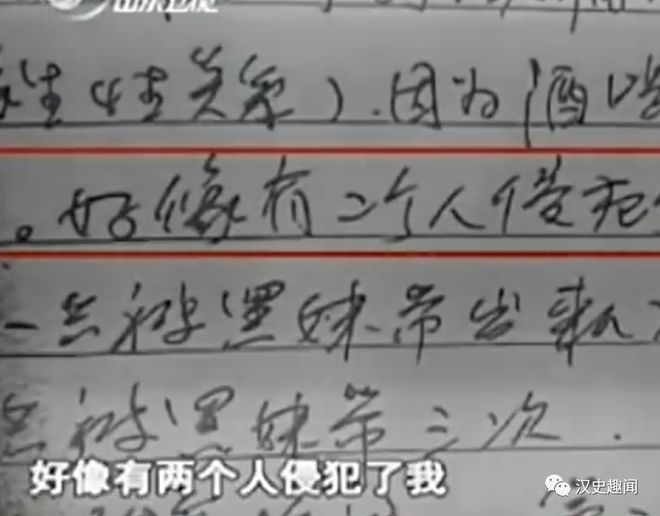 山东卫视
生性关系）.因为酒喝
。好像有二个人侵犯
一共被黑妹带出来
共被黑妹带三次.
好像有两个人侵犯了我
汉史趣闻